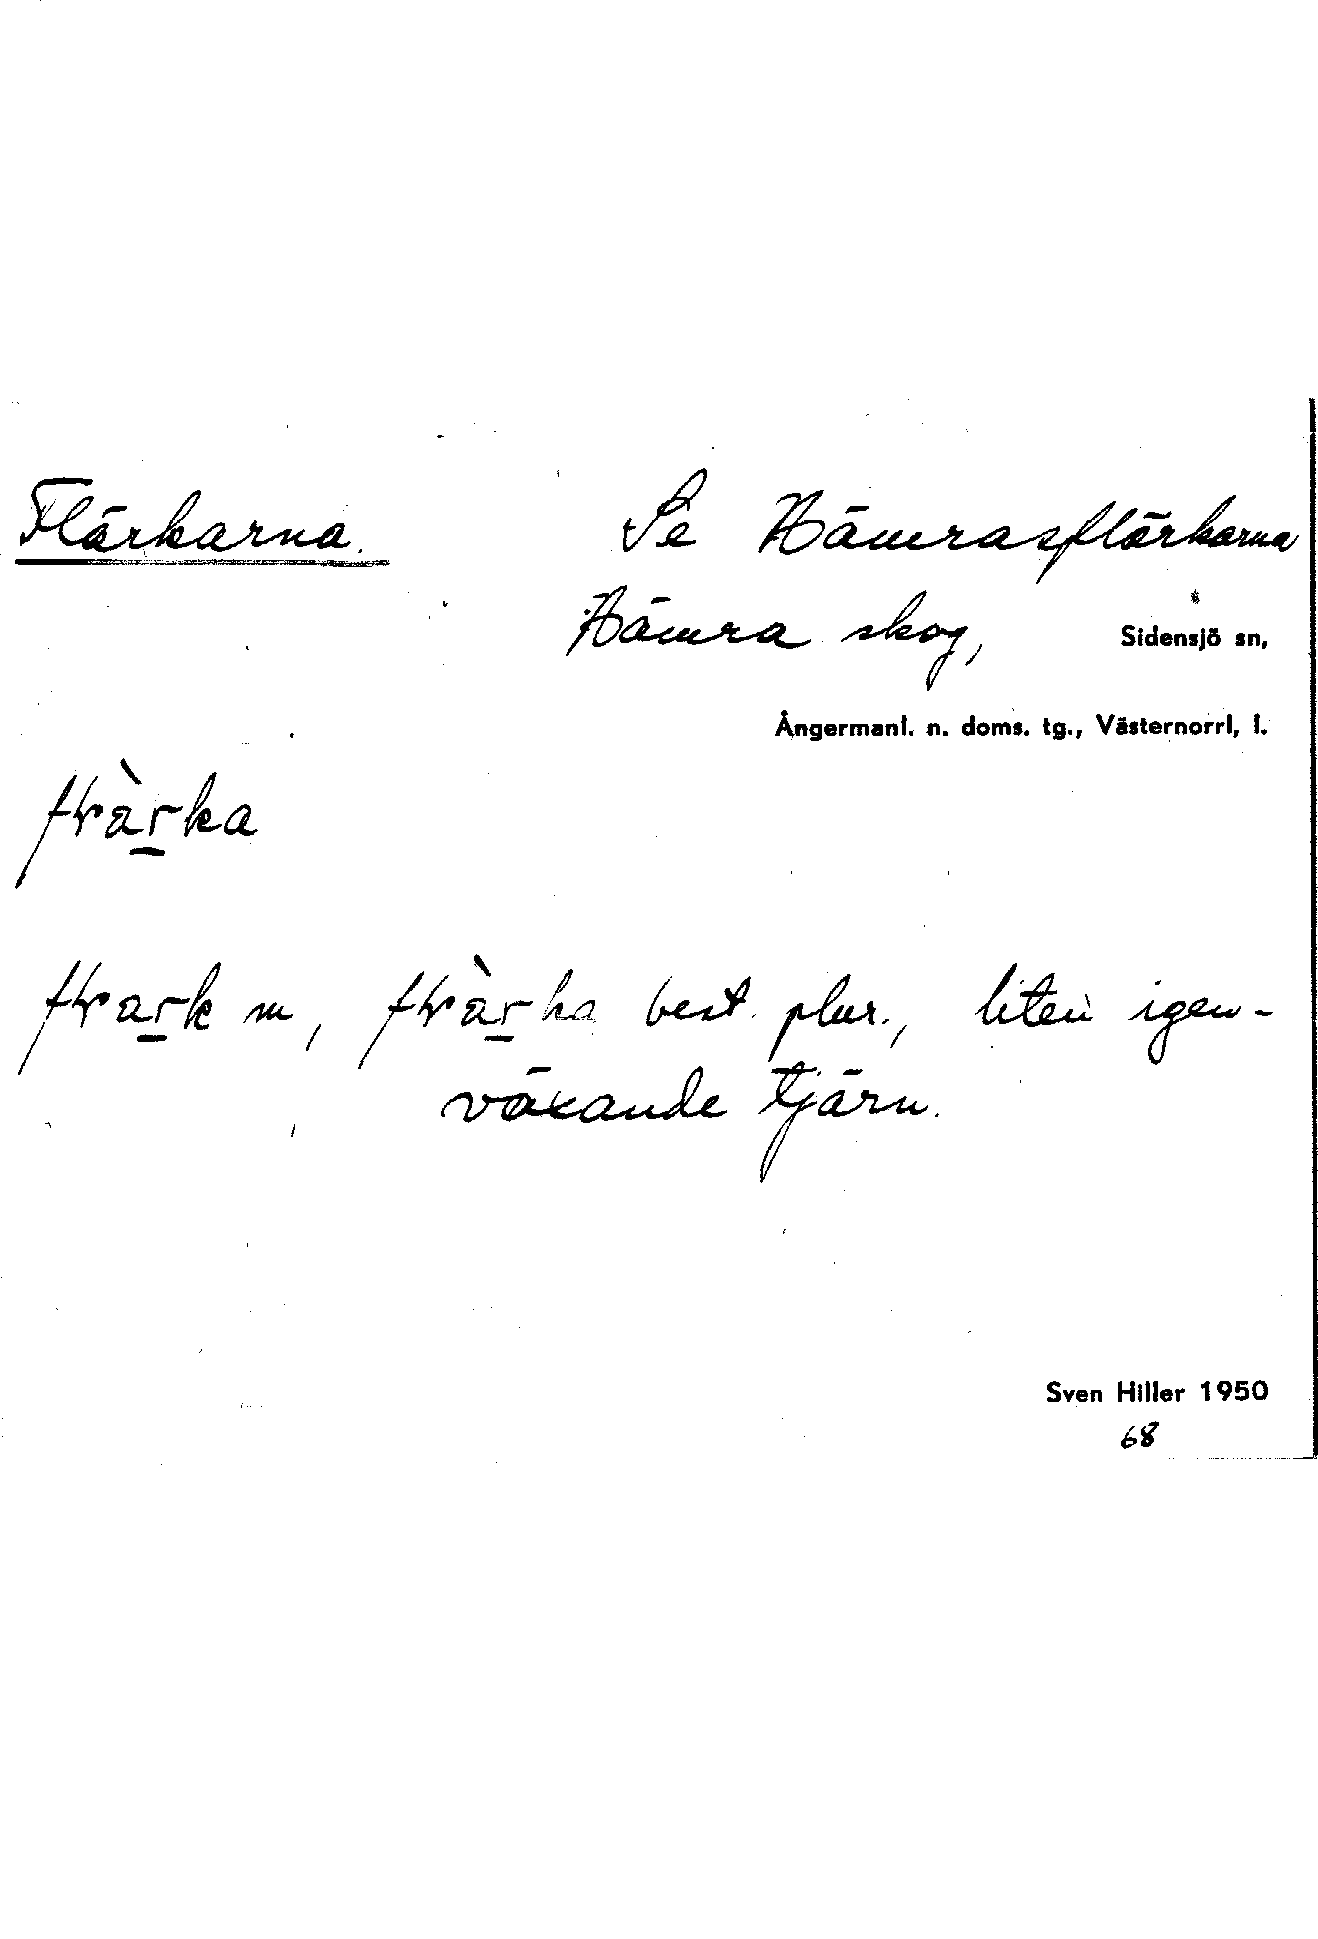 Flärkarna. Se Hämrasflärkarna
Hämra skog, Sidensjö sn,
Ångermanl. n. doms. tg., Västernorrl, l.
best. plur., liten igen-
växande tjärn.
Sven Hiller 1950
68